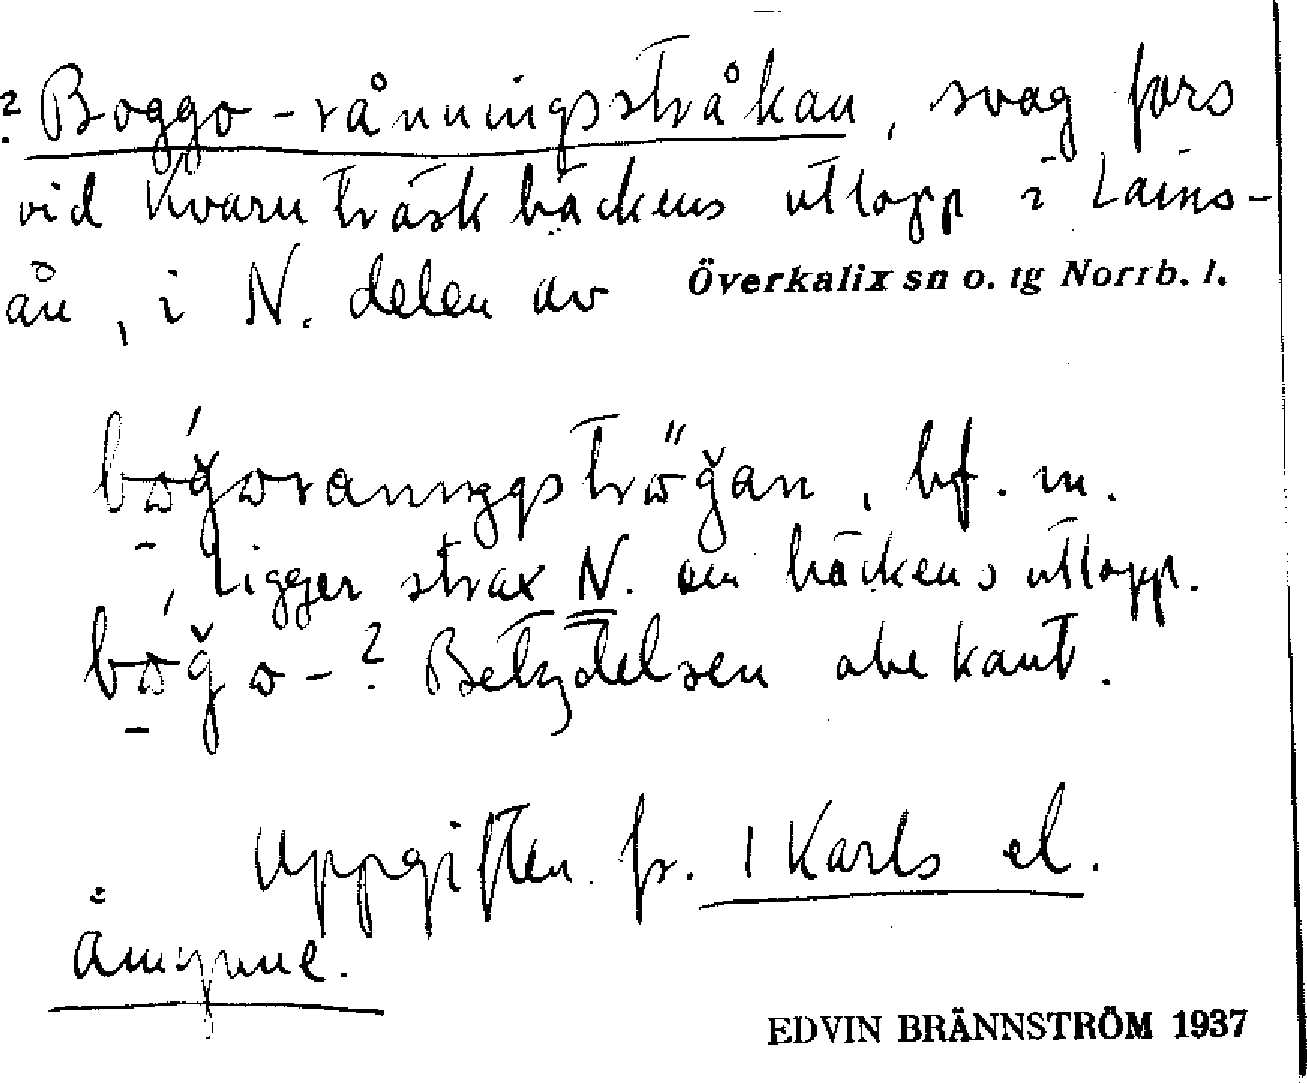 ? Boggo-rånningsstråkan, svag fors
vid Kvarnträskbäckens utlopp i Lains-
ån, i N. delen av Överkalix sn o. tg Norrb. l.
bf. m.
ligger strax N. om bäckens utlopp.
? Betydelsen obekant.
Uppgiften fr. 1 Karls el.
Åmynne.
EDVIN BRÄNNSTRÖM 1937